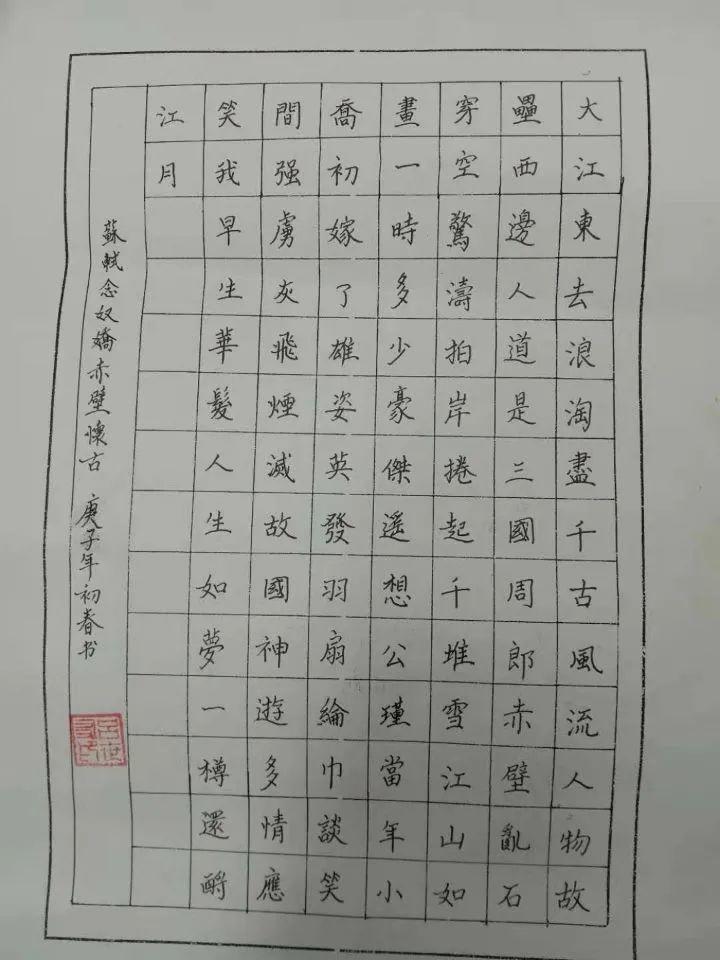 大江東去浪淘盡千古風流人物故
壘西邊人道是三國周郎赤壁亂石
穿空驚濤拍岸捲起千堆雪江山如
畫一時多少豪傑遥想公瑾當年小
喬初嫁了雄姿英發羽扇綸巾談笑
間强虜灰飛煙滅故國神遊多情應
笑我早生華髮人生如夢一樽還酹
江月
蘇軾念奴嬌赤壁懷古 庚子年初春书